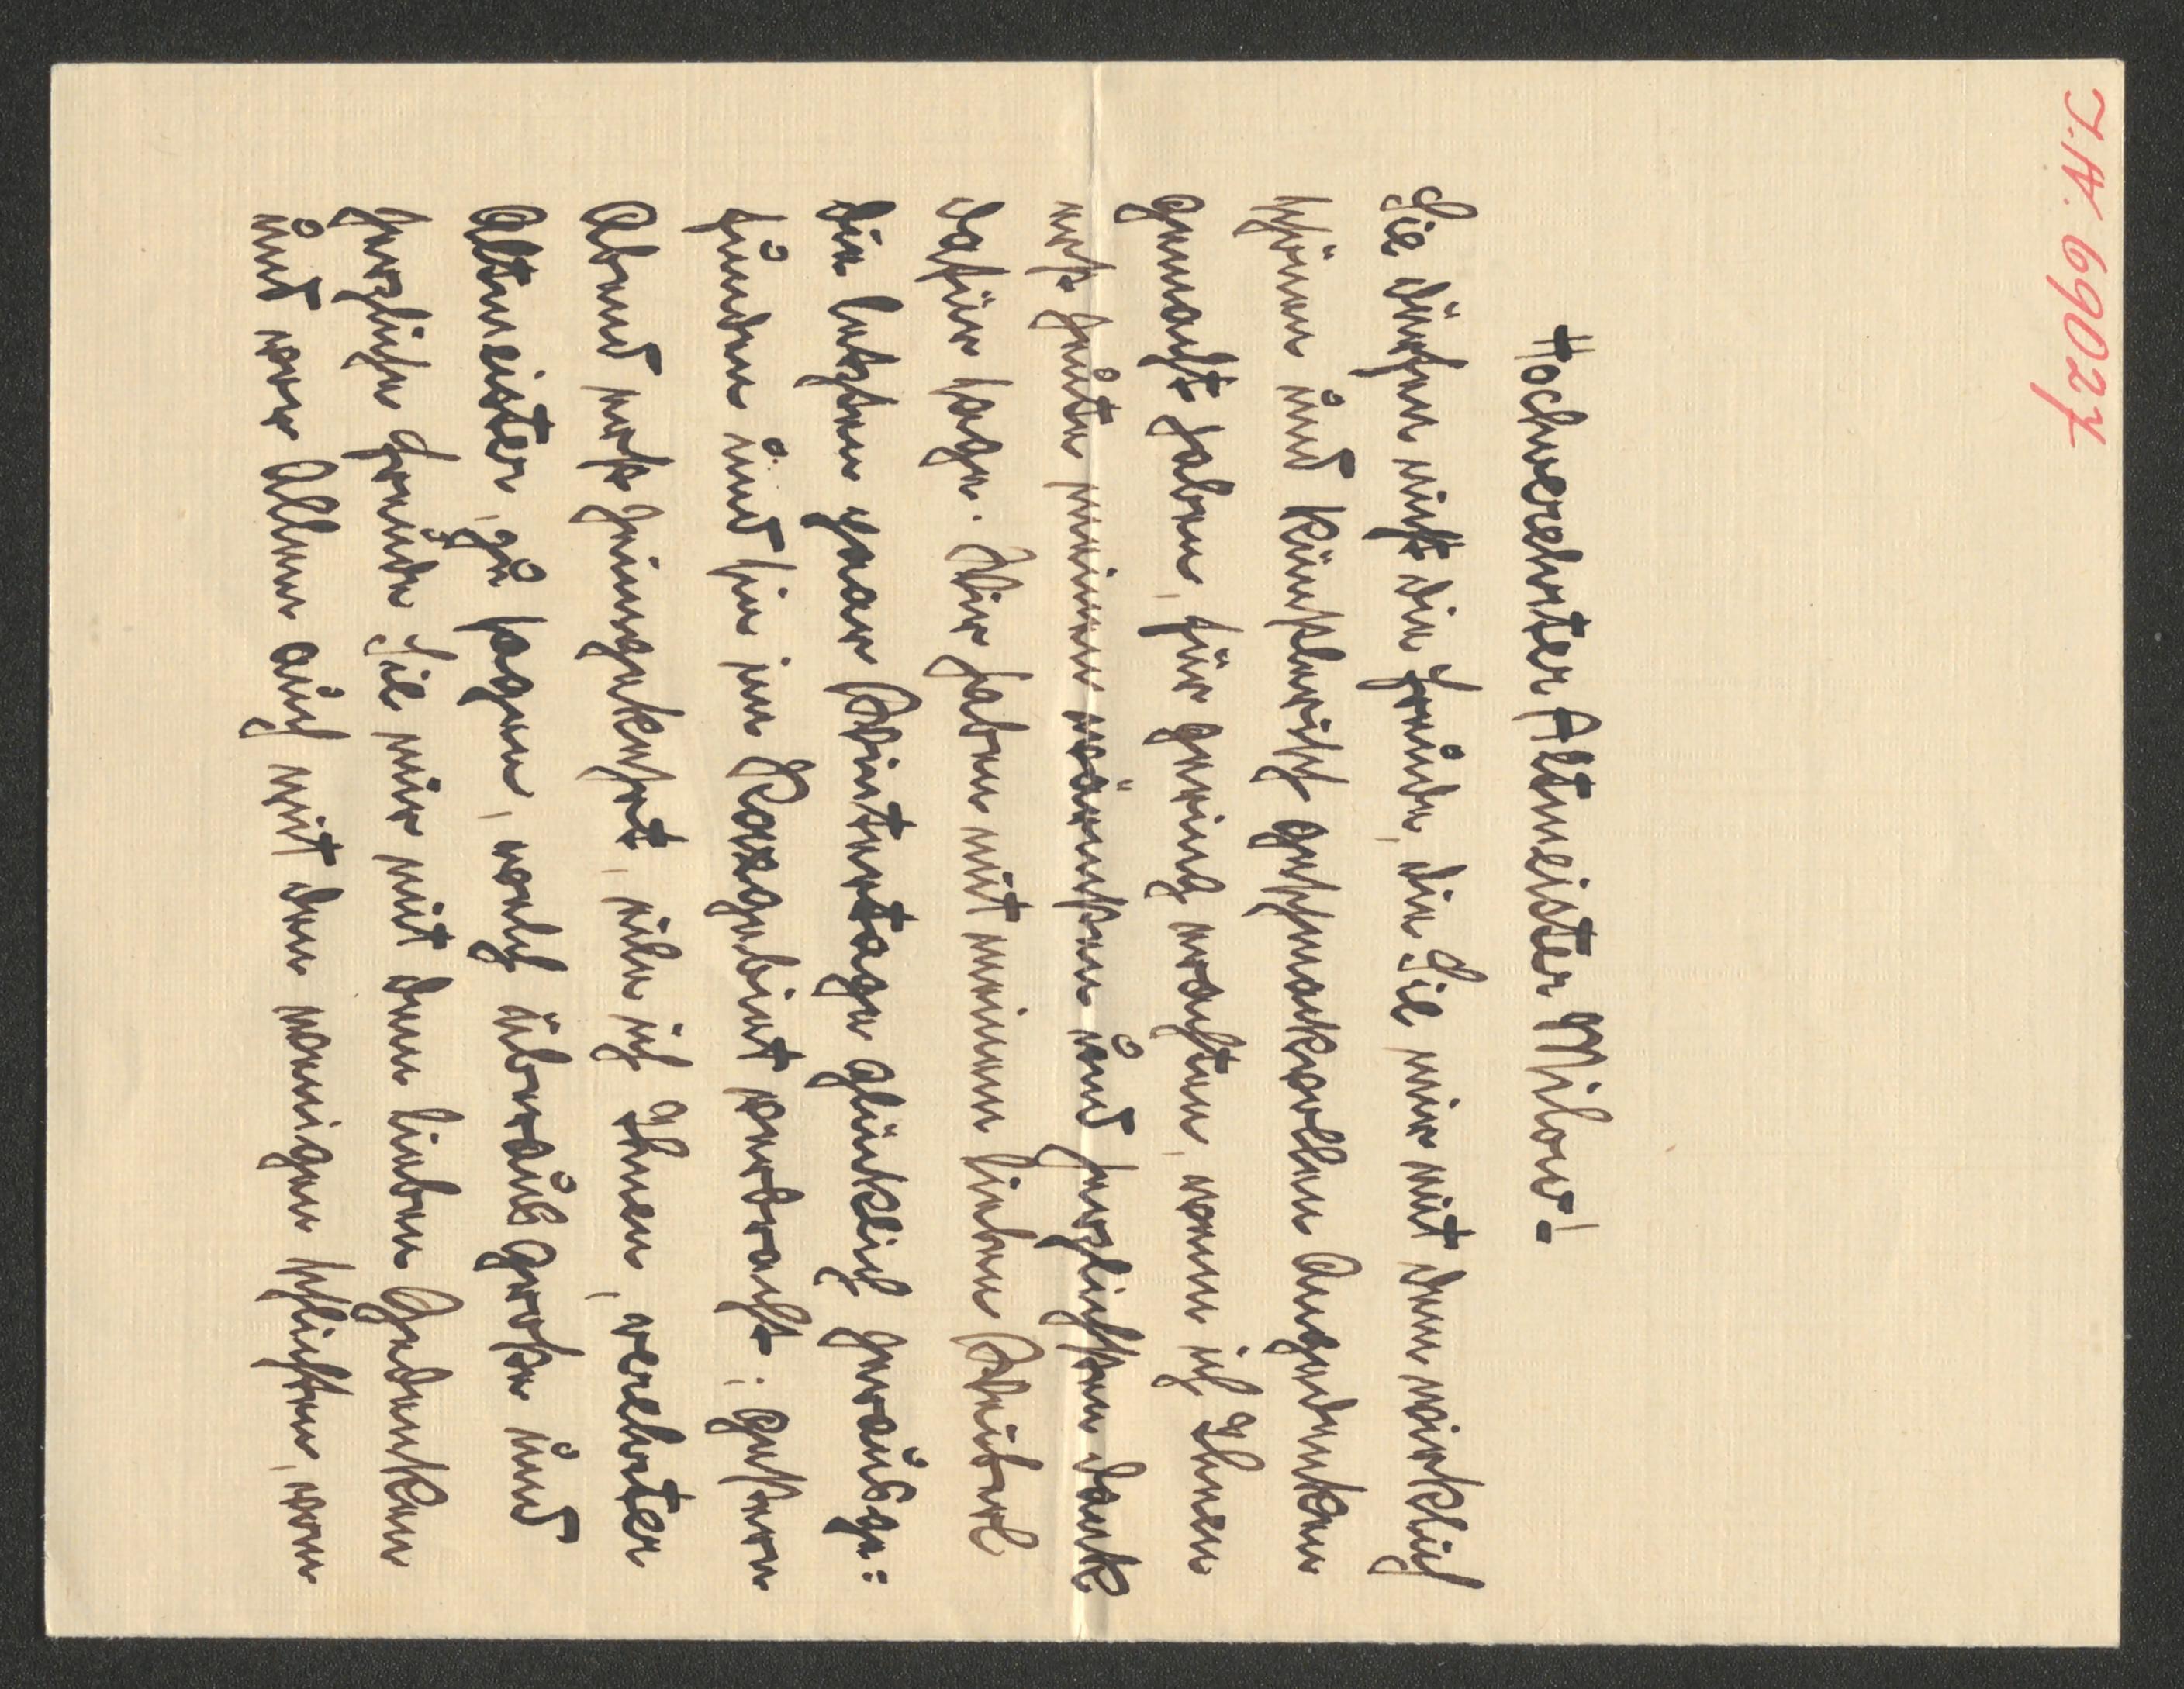 I.N. 69027
Hochverehrter Altmeister Milow!
Sie dürfen nicht die Freude, die Sie mir mit dem wirklich
schönen und künstlerisch geschmackvollen Angedenken
gemacht haben, für gering erachten, wenn ich Ihnen
erst heute meinen wärmsten und herzlichsten Dank
dafür sage. Wir haben mit meinem lieben Weiberl
die letzten paar Wintertage glücklich herausge:
funden und sie im Raxgebiet verbracht; gestern
Abend erst heimgekehrt, eile ich Ihnen, verehrter
Altmeister, zu sagen, welch überaus große und
herzliche Freude Sie mir mit dem lieben Gedenken
und vor Allem auch mit den wenigen schlichten, vom